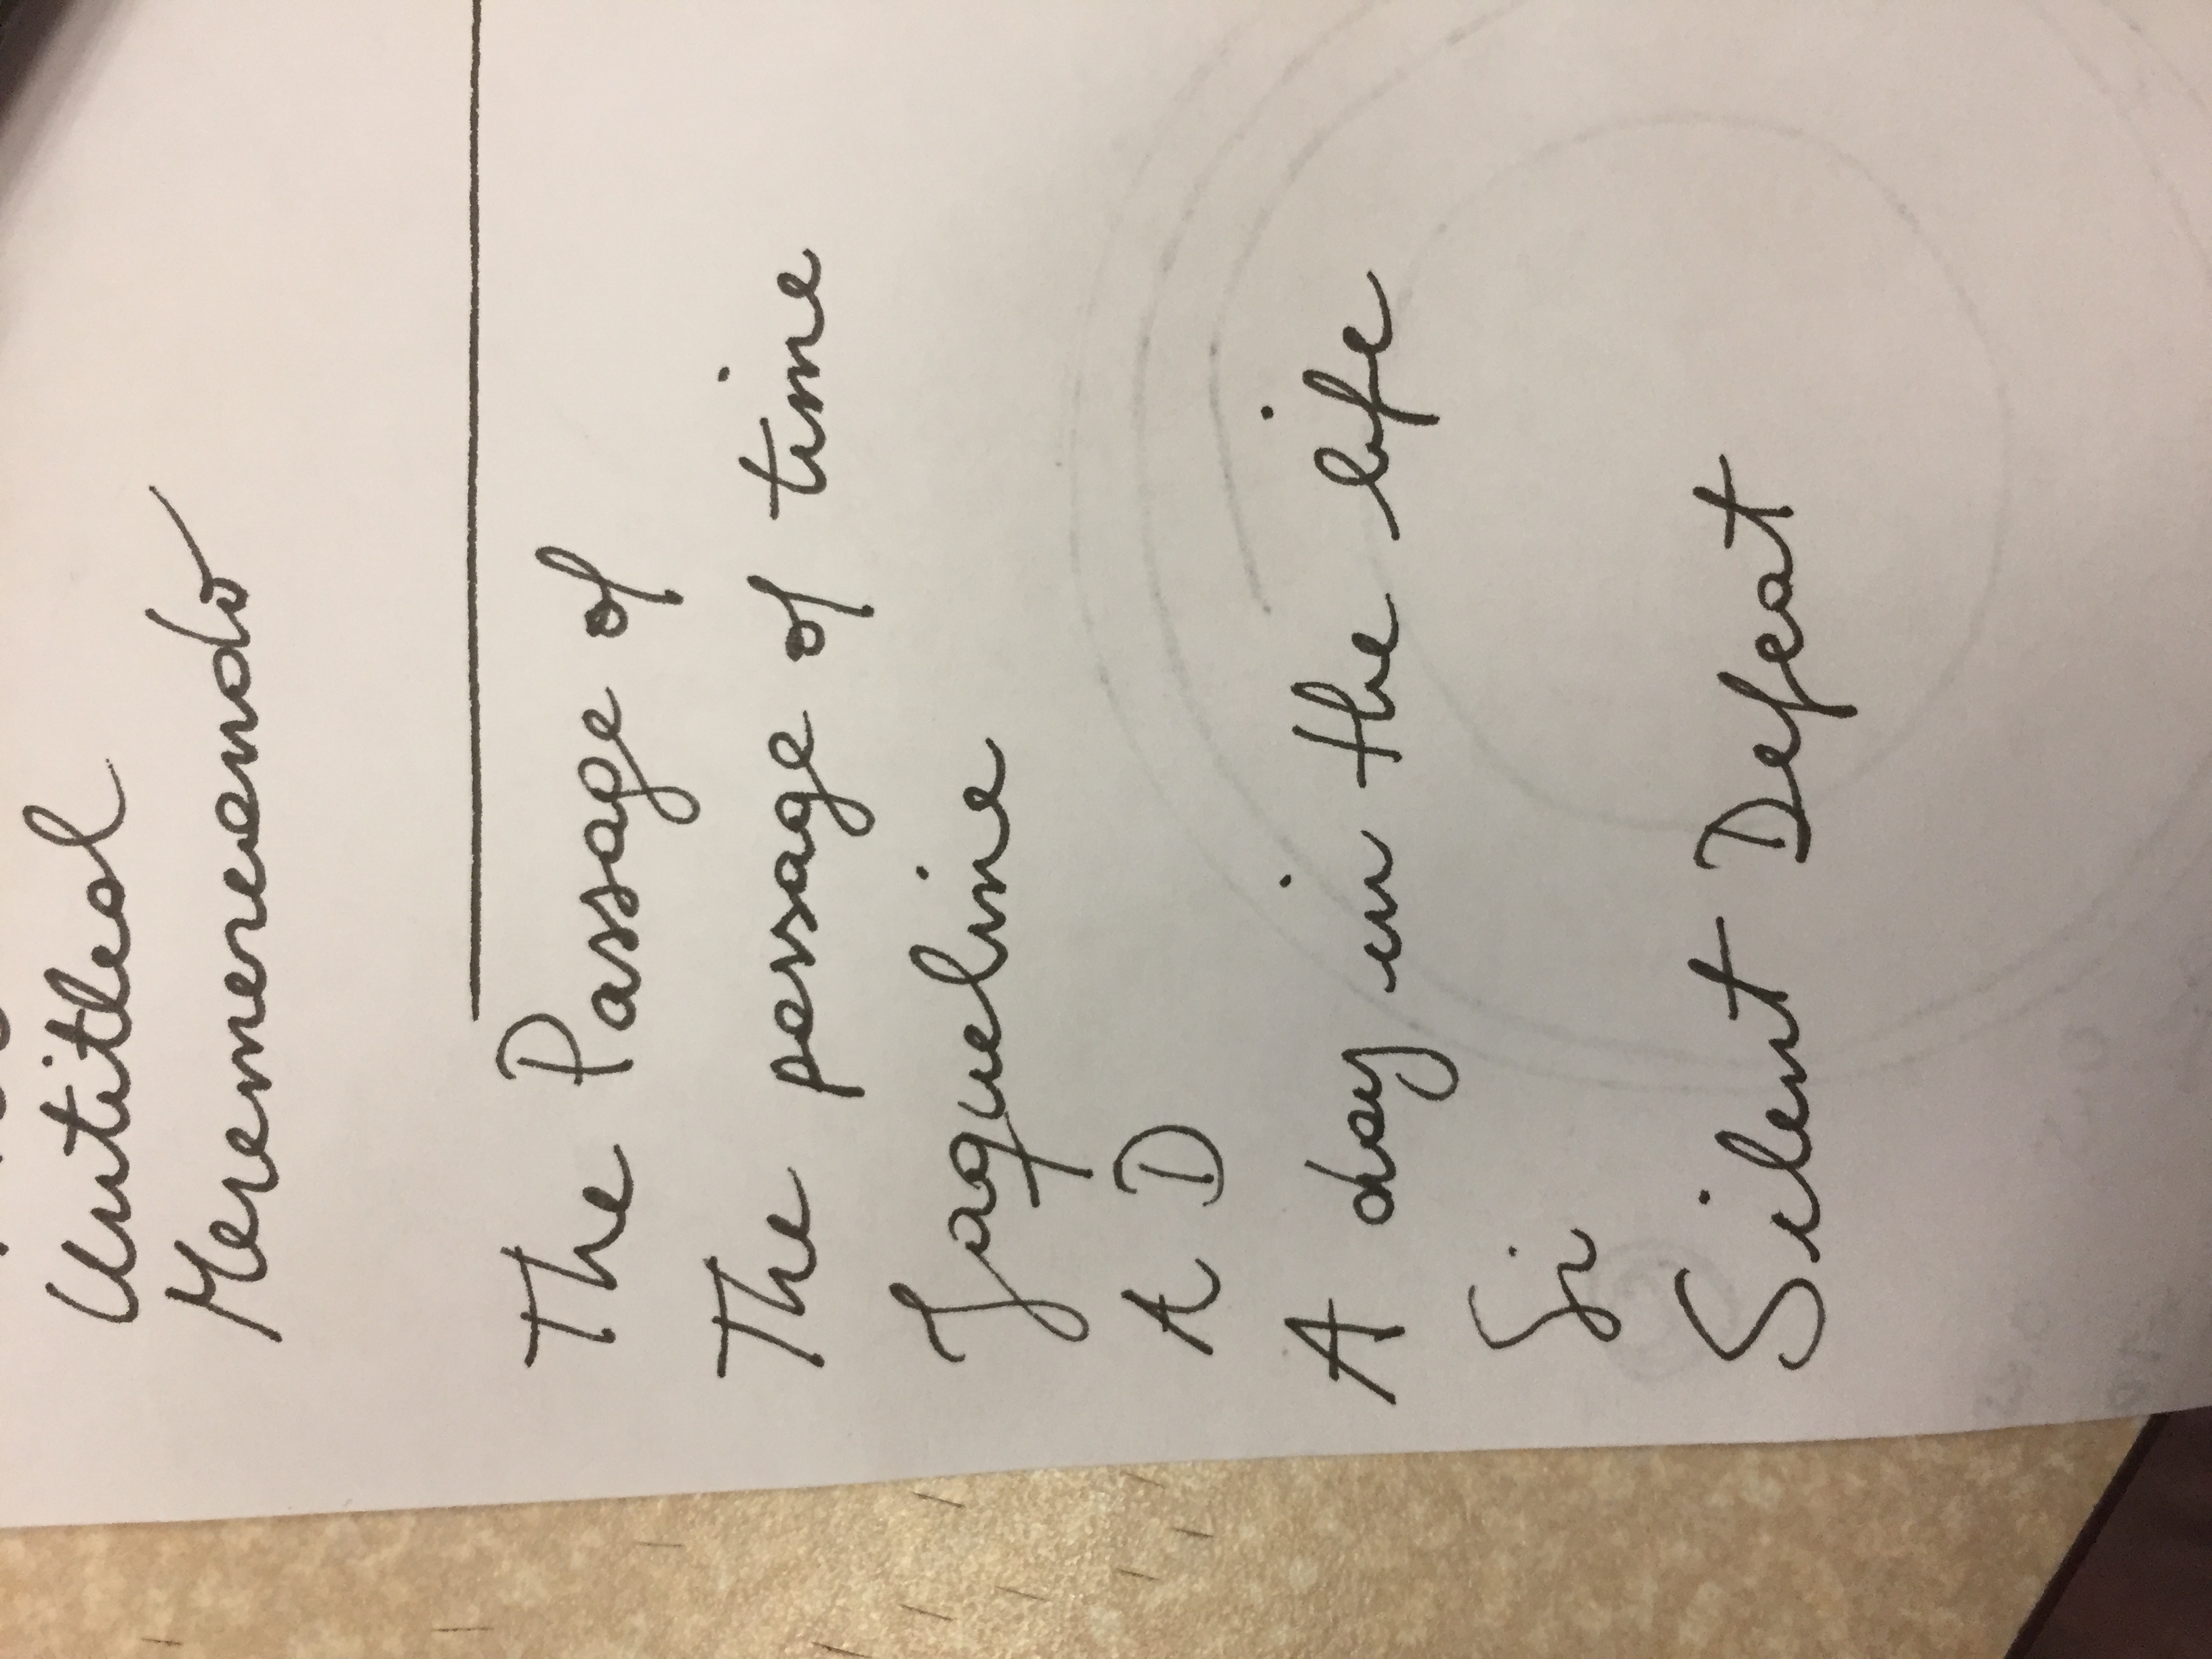 Untitled
Meremereando
The Passage of
The passage of time
Jaqueline
A D
A day in the life
Si
Silent Defeat